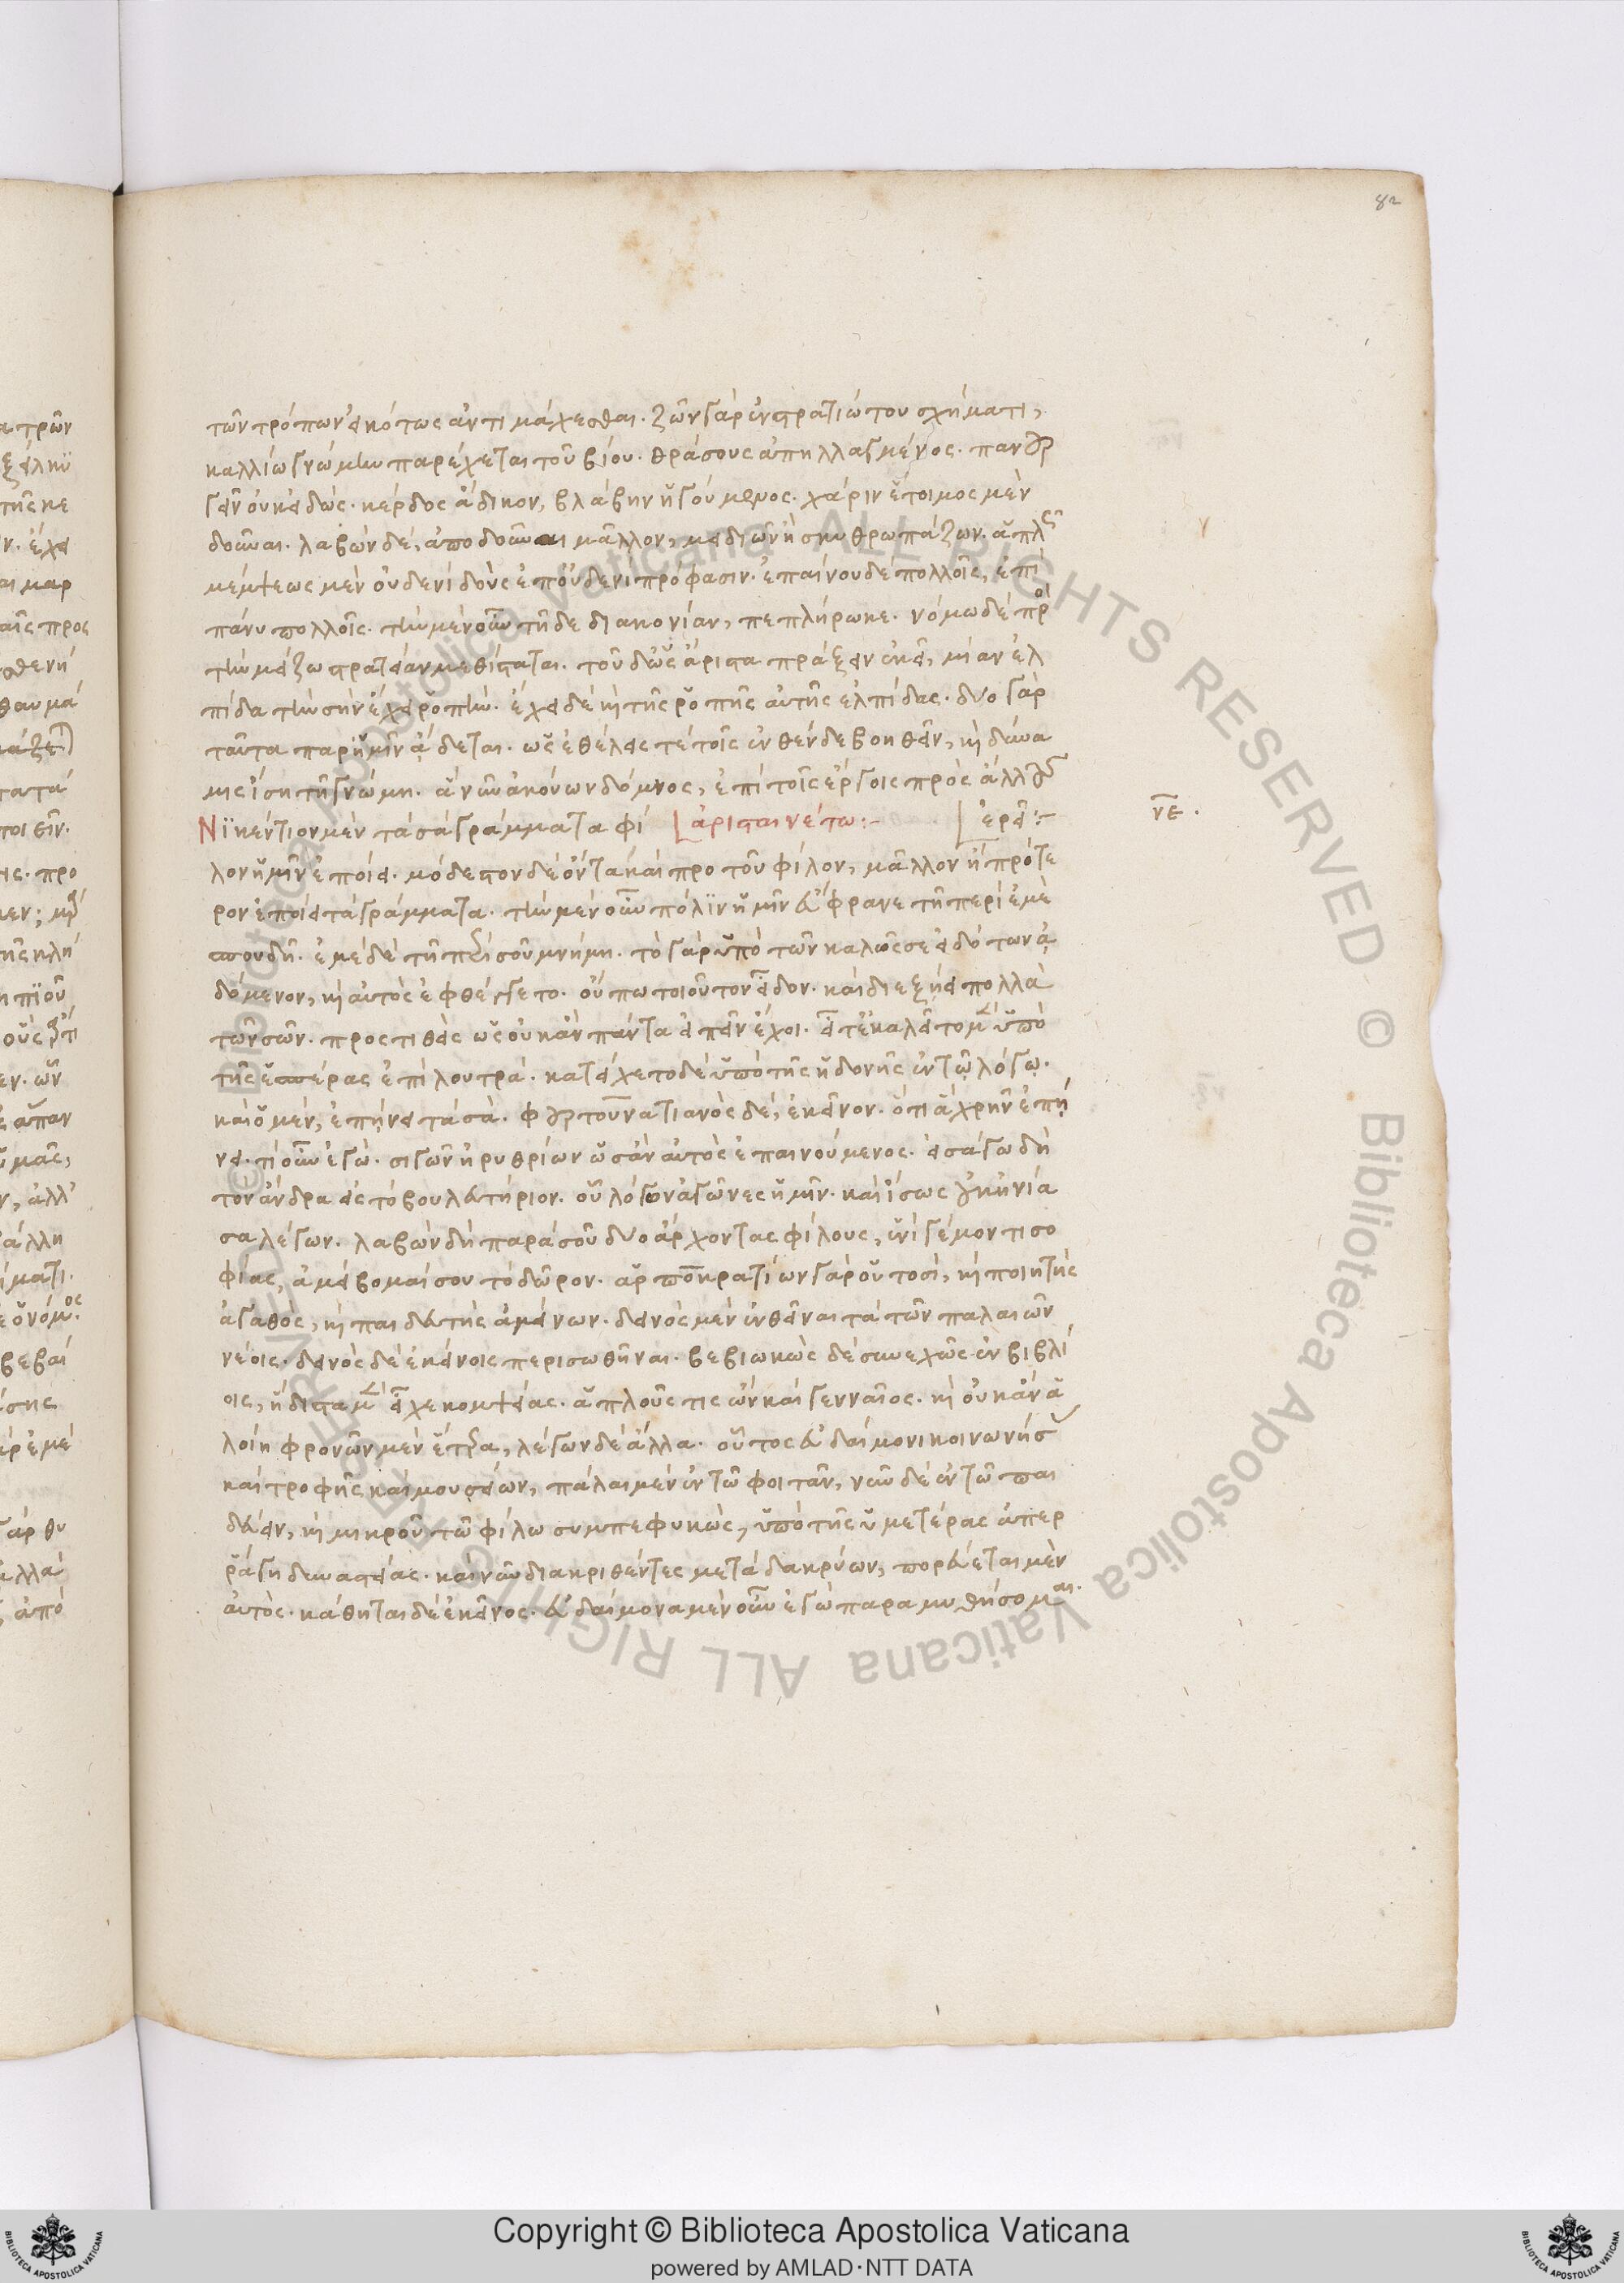 82
τῶν τρόπων εἰκότως ἀντιμάχεσθαι. ζῶν γὰρ ἐν στρατιώτου σχήματι,
καλλίω γνώμην παρέχεται τοῦ βίου. θράσους ἀπηλλαγμένος.
οὐκ εἰδώς. κέρδος ἄδικον, βλάβην ἡγούμενος. χάριν ἕτοιμος μὲν
δοῦναι. λαβὼν δὲ, ἀποδοῦναι μᾶλλον, μειδιῶν ἢ σκυθρωπάζων. ἁπλῶς
μέμψεως μὲν οὐδενὶ δοὺς ἐπ' οὐδενὶ πρόφασιν. ἐπαίνου δὲ πολλοῖς, ἐπὶ
πάνυ πολλοῖς. τὴν μὲν οὖν τῇδε διακονίαν, πεπλήρωκε. νόμω δὲ πρὸς
τὴν μείζω στρατείαν μεθίσταται. τοῦ δ' ὡς ἄριστα πράξειν ἐκεῖ, μίαν ἐλ
πίδα τὴν σὴν ἔχει ῥοπήν. ἔχει δὲ καὶ τῆς ῥοπῆς αὐτῆς ἐλπίδας. δύο γὰρ
ταῦτα παρ' ἡμῖν ᾄδεται. ὡς ἐθέλεις τὲ τοῖς ἐνθένδε βοηθεῖν, καὶ δύνα
μις ἴση τῇ γνώμη. ἃ νῦν ἀκούων δόμνος, ἐπὶ τοῖς ἔργοις πρὸς ἄλλους
ἐρεῖ:-
ἀρισταινέτω:-
νε.
Νϊκέντιον μὲν τὰ σὰ γράμματα φί
λον ἡμῖν ἐποίει. μόδεστον δὲ ὄντα καὶ πρὸ τοῦ φίλον, μᾶλλον ἢ πρότε
ρον ἐποίει τὰ γράμματα. τὴν μὲν οὖν πόλϊν ἡμῖν εὔφρανε τῇ περὶ ἐμὲ
σπουδῇ. ἐμὲ δὲ τῇ περὶ σοῦ μνήμη. τὸ γὰρ ὑπὸ τῶν καλῶς σε εἰδότων ᾀ
δόμενον, καὶ αὐτὸς ἐφθέγγετο. οὔπω τοιοῦτον εἶδον. καὶ διεξῄει πολλὰ
τῶν σῶν. προστιθεὶς ὡς οὐκ ἂν πάντα εἰπεῖν ἔχοι. εἶτ' ἐκαλεῖτο μὲν ὑπὸ
τῆς ἑσπέρας ἐπὶ λουτρά. κατείχετο δὲ ὑπὸ τῆς ἡδονῆς ἐν τῷ λόγῳ.
καὶ ὁ μὲν, ἐπῄνει τὰ σά. φορτουνατιανὸς δὲ, ἐκεῖνον. ὅτι ἃ χρῆν ἐπῄ
νει. τί οὖν ἐγώ. σιγῶν ἠρυθρίων ὡσὰν αὐτὸς ἐπαινούμενος. εἰσάγω δὴ
τὸν ἄνδρα εἰς τὸ βουλευτήριον. οὗ λόγων ἀγῶνες ἡμῖν. καὶ ἴσως
σα λέγων. λαβὼν δὴ παρὰ σοῦ δύο ἄρχοντας φίλους, ἑνὶ γέμοντι σο
φίας, ἀμείβομαί σου τὸ δῶρον. ἁρποκρατίων γὰρ οὑτοσὶ, καὶ ποιητὴς
ἀγαθὸς, καὶ παιδευτὴς ἀμείνων. δεινὸς μὲν ἐνθεῖναι τὰ τῶν παλαιῶν
νέοις. δεινὸς δὲ ἐκείνοις περισωθῆναι. βεβιωκὼς δὲ συνεχῶς ἐν βιβλί
οις, ἥδιστα μὲν εἶχε κομψείας. ἁπλοῦς τις ὢν καὶ γενναῖος. καὶ οὐκ ἂν ἁ
λοίη φρονῶν μὲν ἕτερα, λέγων δὲ ἄλλα. οὗτος εὐδαίμονι κοινωνήσας
καὶ τροφῆς καὶ μουσείων, πάλαι μὲν ἐν τῶ φοιτᾶν, νῦν δὲ ἐν τῶ παι
δεύειν, καὶ μικροῦ τῶ φίλω συμπεφυκὼς, ὑπὸ τῆς ὑμετέρας ἀπερ
ράγη δυναστείας. καὶ νῦν διακριθέντες μετὰ δακρύων, πορεύεται μὲν
αὐτὸς. κάθηται δὲ ἐκεῖνος. εὐδαίμονα μὲν οὖν ἐγὼ παραμυθήσομαι.
Copyright © Biblioteca Apostolica Vaticana
powered by AMLAD・NTT DATA